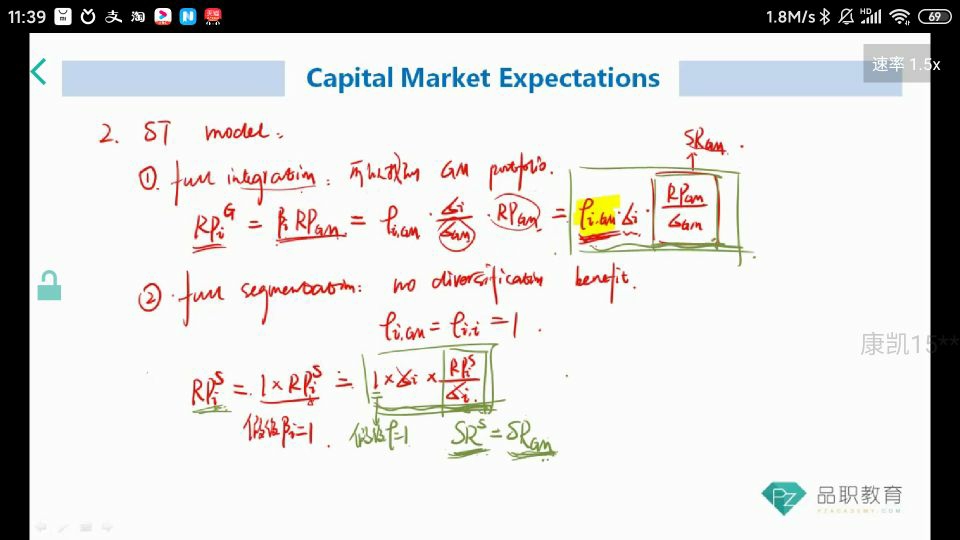 11:39 支 淘 N 1.8M/s HD 69
速率 1.5x
Capital Market Expectations
2. ST model:
SR_GM.
① full integration: 所以投 GM portfolio.
RP_i^G = β_i RP_GM = ρ_i,GM · σ_i/σ_GM · RP_GM = ρ_i,GM · σ_i · RP_GM/σ_GM
② full segmentation: no diversification benefit.
ρ_i,GM = ρ_i,i = 1.
康凯15**
RP_i^S = 1 × RP_i^S = 1 × σ_i × RP_i^S/σ_i
假设β_i=1. 假设ρ=1 SR^S = SR_GM
PZ 品职教育
PZACADEMY.COM